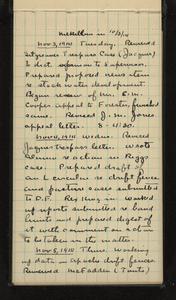 McMillan in 10/31/14
Nov 3, 1914 Tuesday. Revised
Sitgreaves Trespass Case (Jaques)
& dist. opinion to Supervisor.
Prepared proposed news item
re stock water development.
Began review of Mr. E. W.
Cooper appeal to Forester, finished
same. Revised J. M. Jones
appeal letter. 8 - 4:30.
Nov 4, 1914. Wedns. Revised
Jaques trespass letter. Wrote
re action in Riggs
case. Prepared draft of
an L circular re drift fence
and pasture cases submitted
to D.F. Res. may in marked
up reports submitted re land
limits and prepared digest of
it with comment on action
to be taken in the matter.
Nov 5, 1914 Thurs. Working
up data on Apache drift fences.
Reviewed McFadden (Tonto)